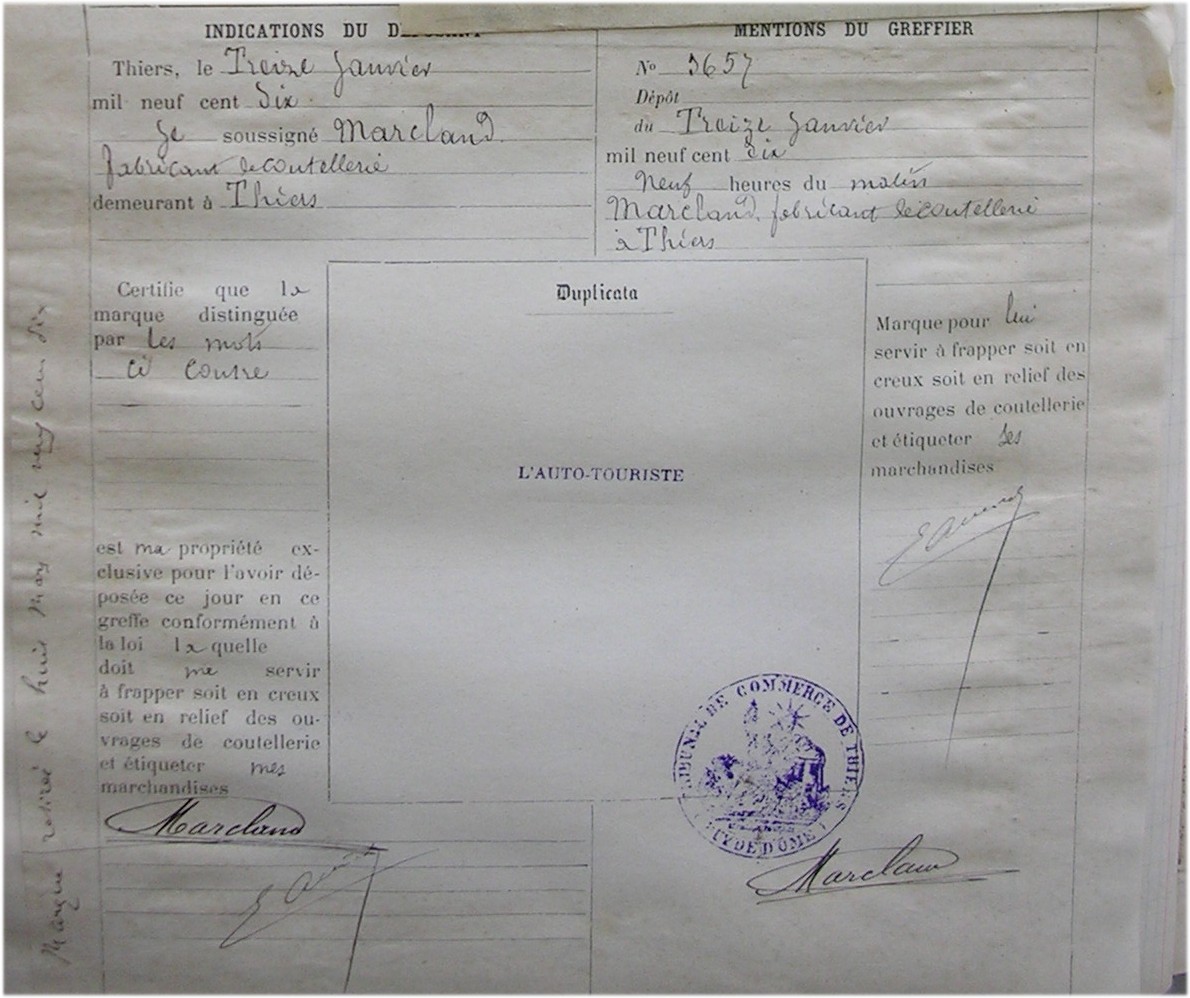 INDICATIONS DU D
Thiers, le Treize Janvier
mil neuf cent Dix
Je soussigné Marcland
fabricant de coutellerie
demeurant à Thiers
MENTIONS DU GREFFIER
No 3657
Dépôt
du Treize Janvier
mil neuf cent dix
Neuf heures du matin
Marcland, fabricant de coutellerie
à Thiers
Certifie que la
marque distinguée
par les mots
ci contre
est ma propriété ex-
clusive pour l'avoir dé-
posée ce jour en ce
greffe conformément à
la loi la quelle
doit me servir
à frapper soit en creux
soit en relief des ou-
vrages de coutellerie
et étiqueter mes
marchandises
Marcland
Duplicata
L'AUTO-TOURISTE
Marque pour lui
servir à frapper soit en
creux soit en relief des
ouvrages de coutellerie
et étiqueter ses
marchandises
TRIBUNAL DE COMMERCE DE THIERS
(PUY DE DÔME)
Marcland
Marque retirée le huit Mars mil neuf cent dix